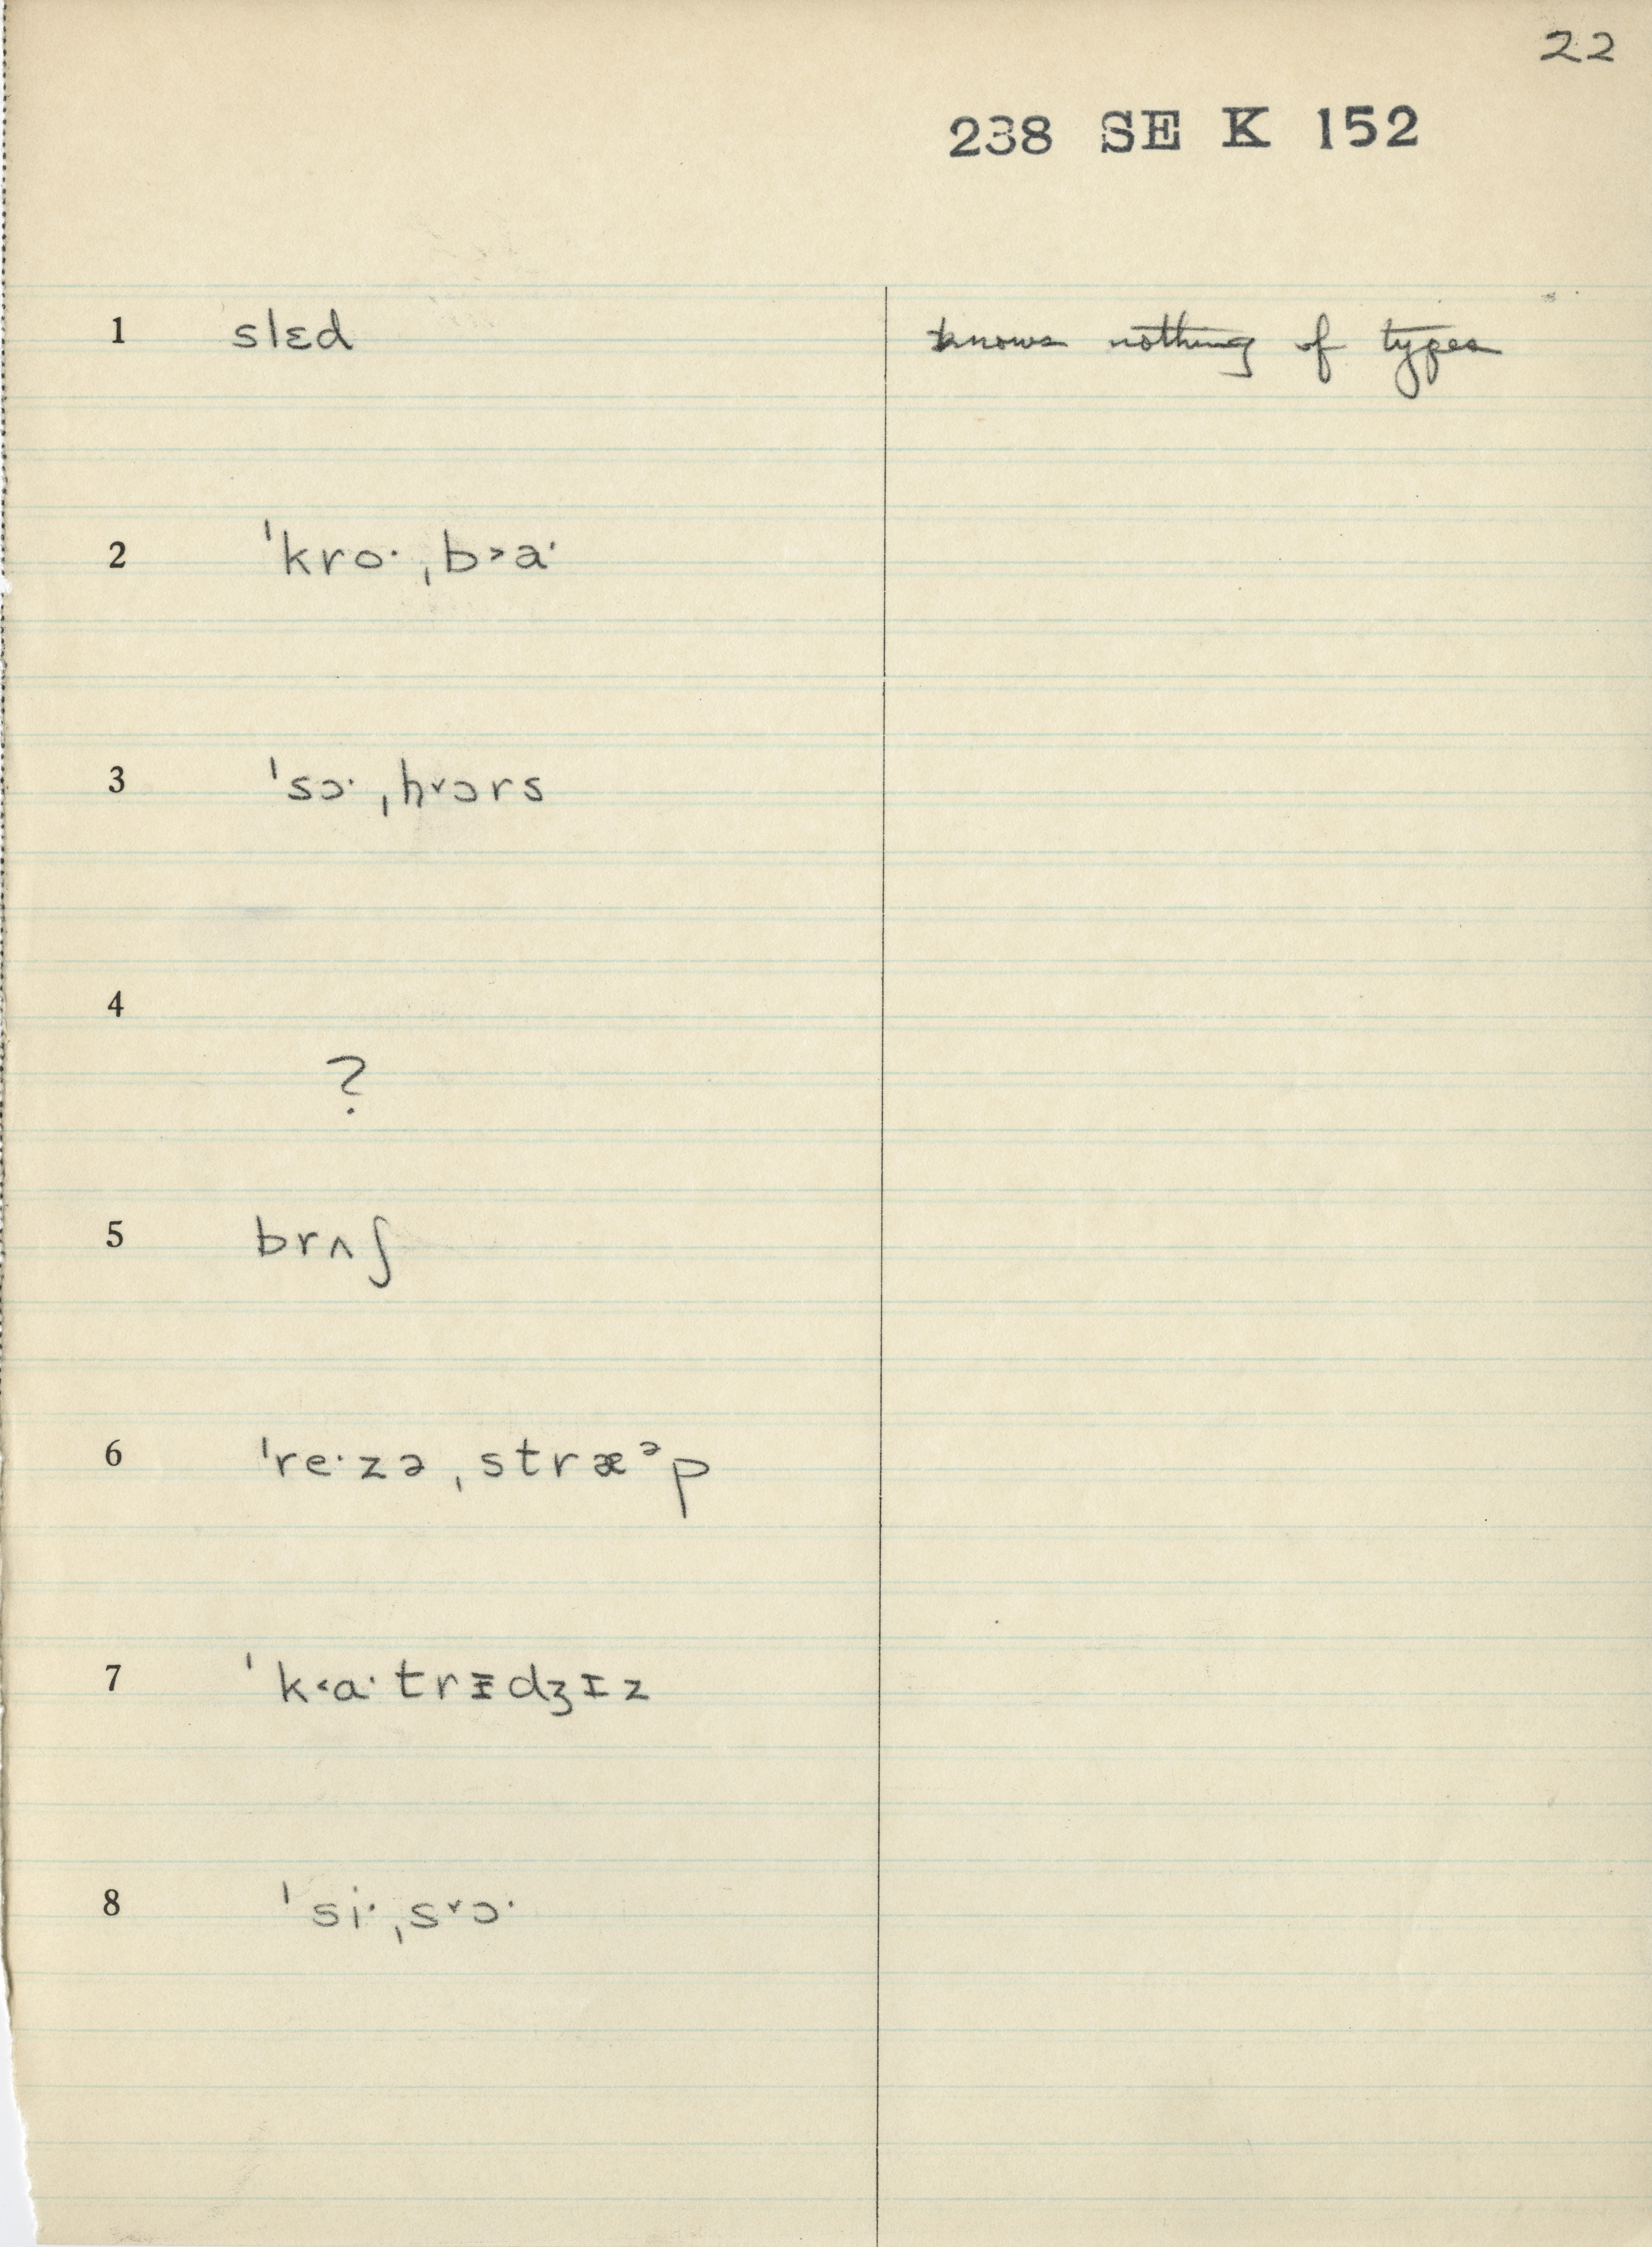 22
238 SE K 152
1 slɛd knows nothing of types
2 ˈkroˑˌb˃aˑ
3 ˈsɔˑˌh˅ɔrs
4
?
5 brʌʃ
6 ˈreˑzəˌstræᵊp
7 ˈk˂aˑtrɪ̵dʒɪz
8 ˈsiˑˌs˅ɔˑ